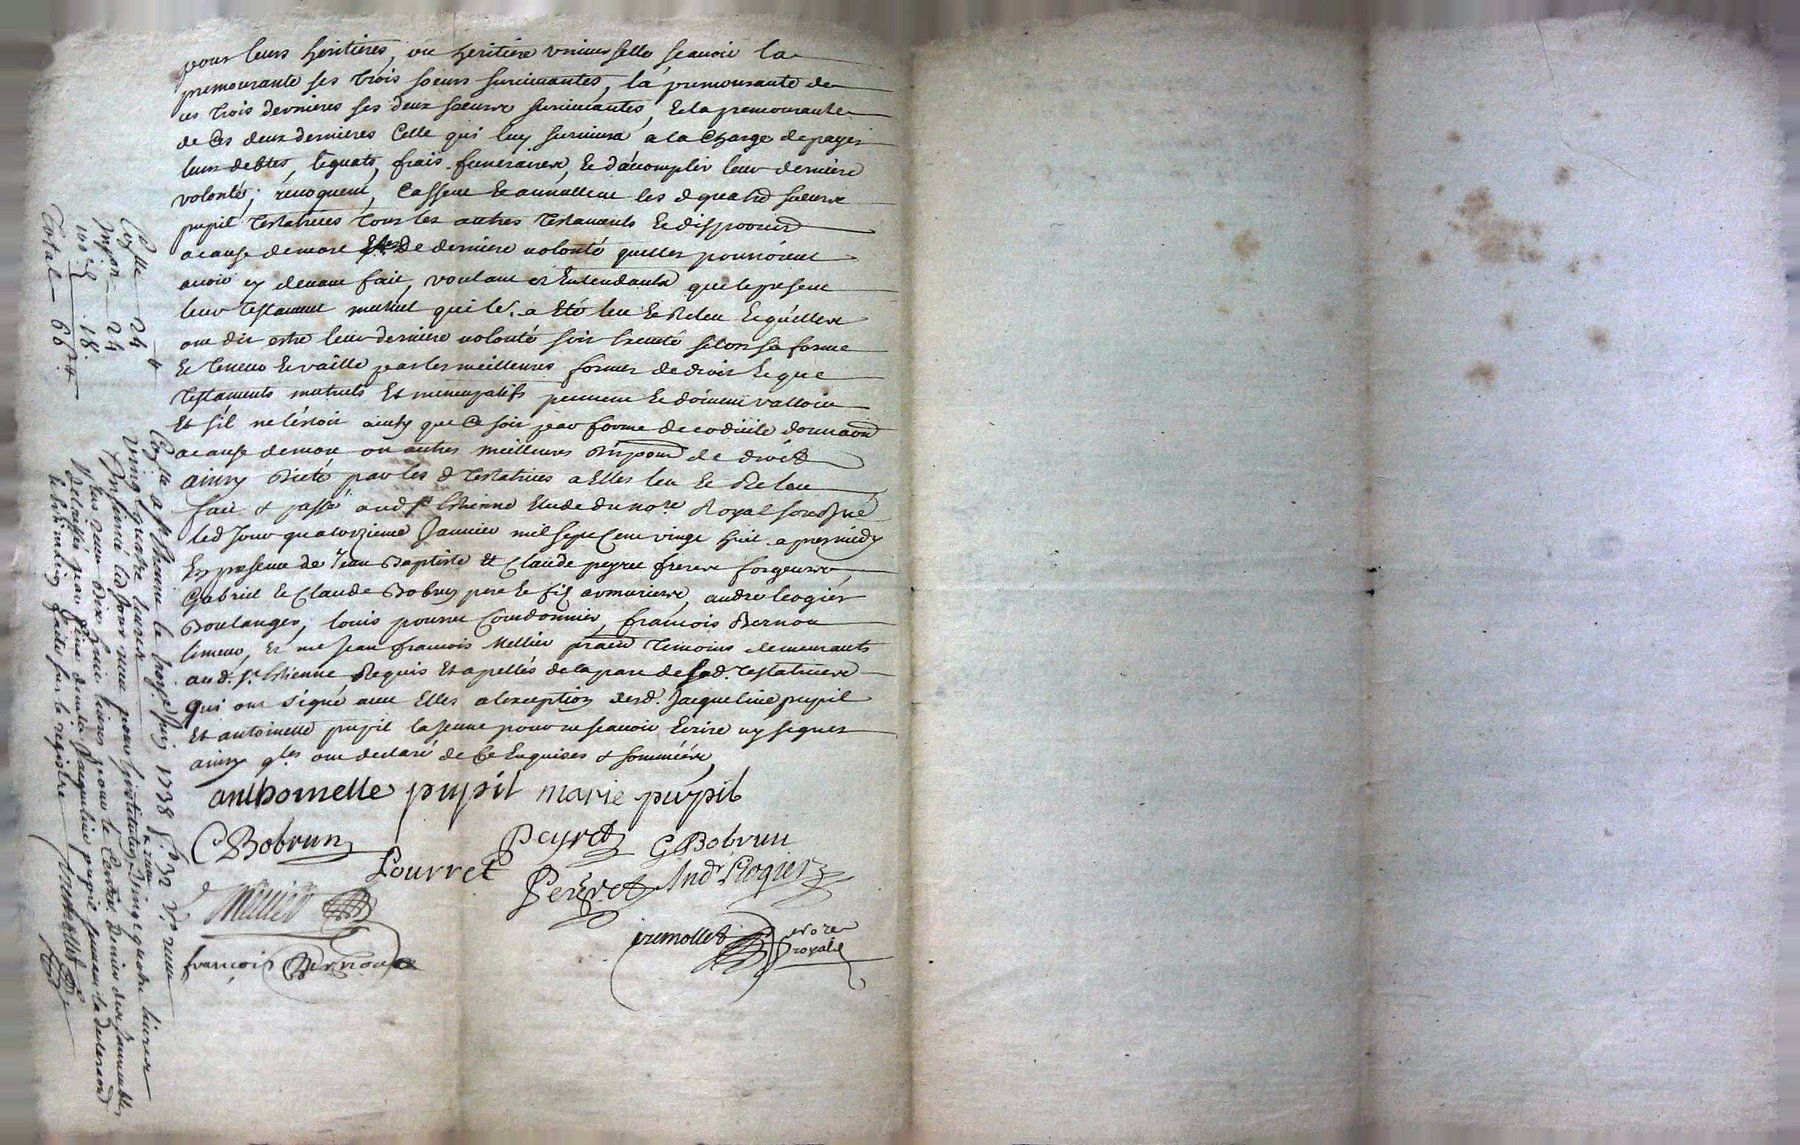 pour leurs héritières, ou héritière universelle scavoir la
premourante ses trois soeurs survivantes, la premourante de
ces trois dernieres ses deux soeurs survivantes, Et la premourante
de Ces deux dernieres Celle qui luy survivra a la Charge de payer
leurs debtes, leguats, frais funeraires, Et d'acomplir leur derniere
volonté; révoquent, Cassent Et annullent les d quatre soeurs
pupil Testatrices tous les autres Testaments Et dispoons
a cause de mort Et de derniere volonté quelles pourroient
avoir cy devant fait, voulant et Entendants que le present
leur Testament mutuel qui leur a Eté leu Et Releu Et quelles
ont dit estre leur derniere volonté soit Executé selon sa forme
Et teneur Et vaille par les meilleures formes de droit Et que
Testaments mutuels Et nuncupatifs peuvent Et doivent valloir
Et s'il ne l'estoit ainsy que Ce soit par forme de codicile donnaon
a cause de mort ou autres meilleures dispoons de droit
ainsy dicté par les d Testatrices a Elles leu Et Releu
fait & passé aud St Estienne Etude du nore Royal soubsigné
led Jour quatorzieme Janvier mil sept Cent vingt huit apres midy
En presence de Jean Baptiste Et Claude peyret freres forgeurs,
Gabriel Et Claude Bobrun pere Et fils armuriers, andré liogier
Boulanger, louis pourret Cordonnier, françois Bernou
limeur, Et me Jean francois Mellier praen temoins demeurants
aud. St Estienne Requis Et apellés de la part desd. Testatrices
qui ont signé avec Elles a l'exception desd. Jacqueline pupil
Et antoinette pupil la Jeune pour ne scavoir Ecrire ny signer
ainsy qles ont declaré de Ce Enquises & sommées,
anthoinette pupil marie pupil
C Bobrun Peyret G Bobrun
Pourret Peyret And Liogier
Mellier
françois Bernou
fremollet nore royal
Colle 24
Insion 24
100e 18
Total 66
Collé a St Etienne le 1738 fo 32 Vo reçu
vingt quatre livres
Insinué led Jour reçu pour vingt quatre livres
Plus reçu dix huit livres pour le Centieme Denier des Immeubles
delaissés par feue Jaqueline pupil suivant la declaraon
faite sur le registre